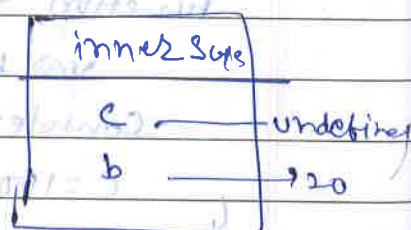 inner Sops
c — undefined
b → 20